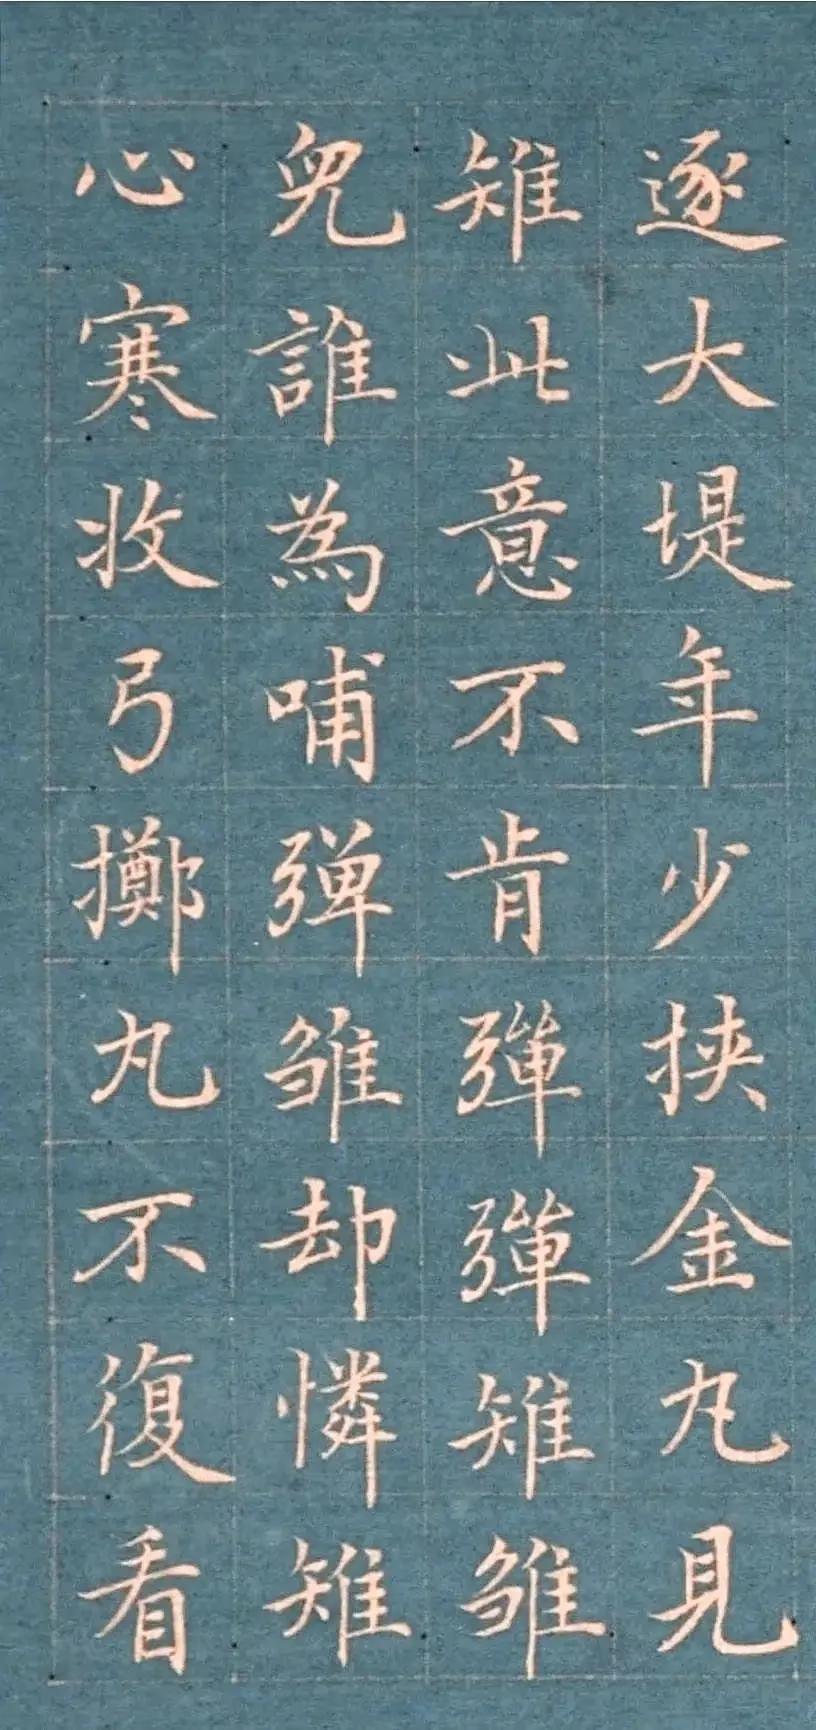 逐大堤年少挾金丸見
雉此意不肯彈彈雉雛
兒誰為哺弹雏却憐雉
心寒收弓擲丸不復看